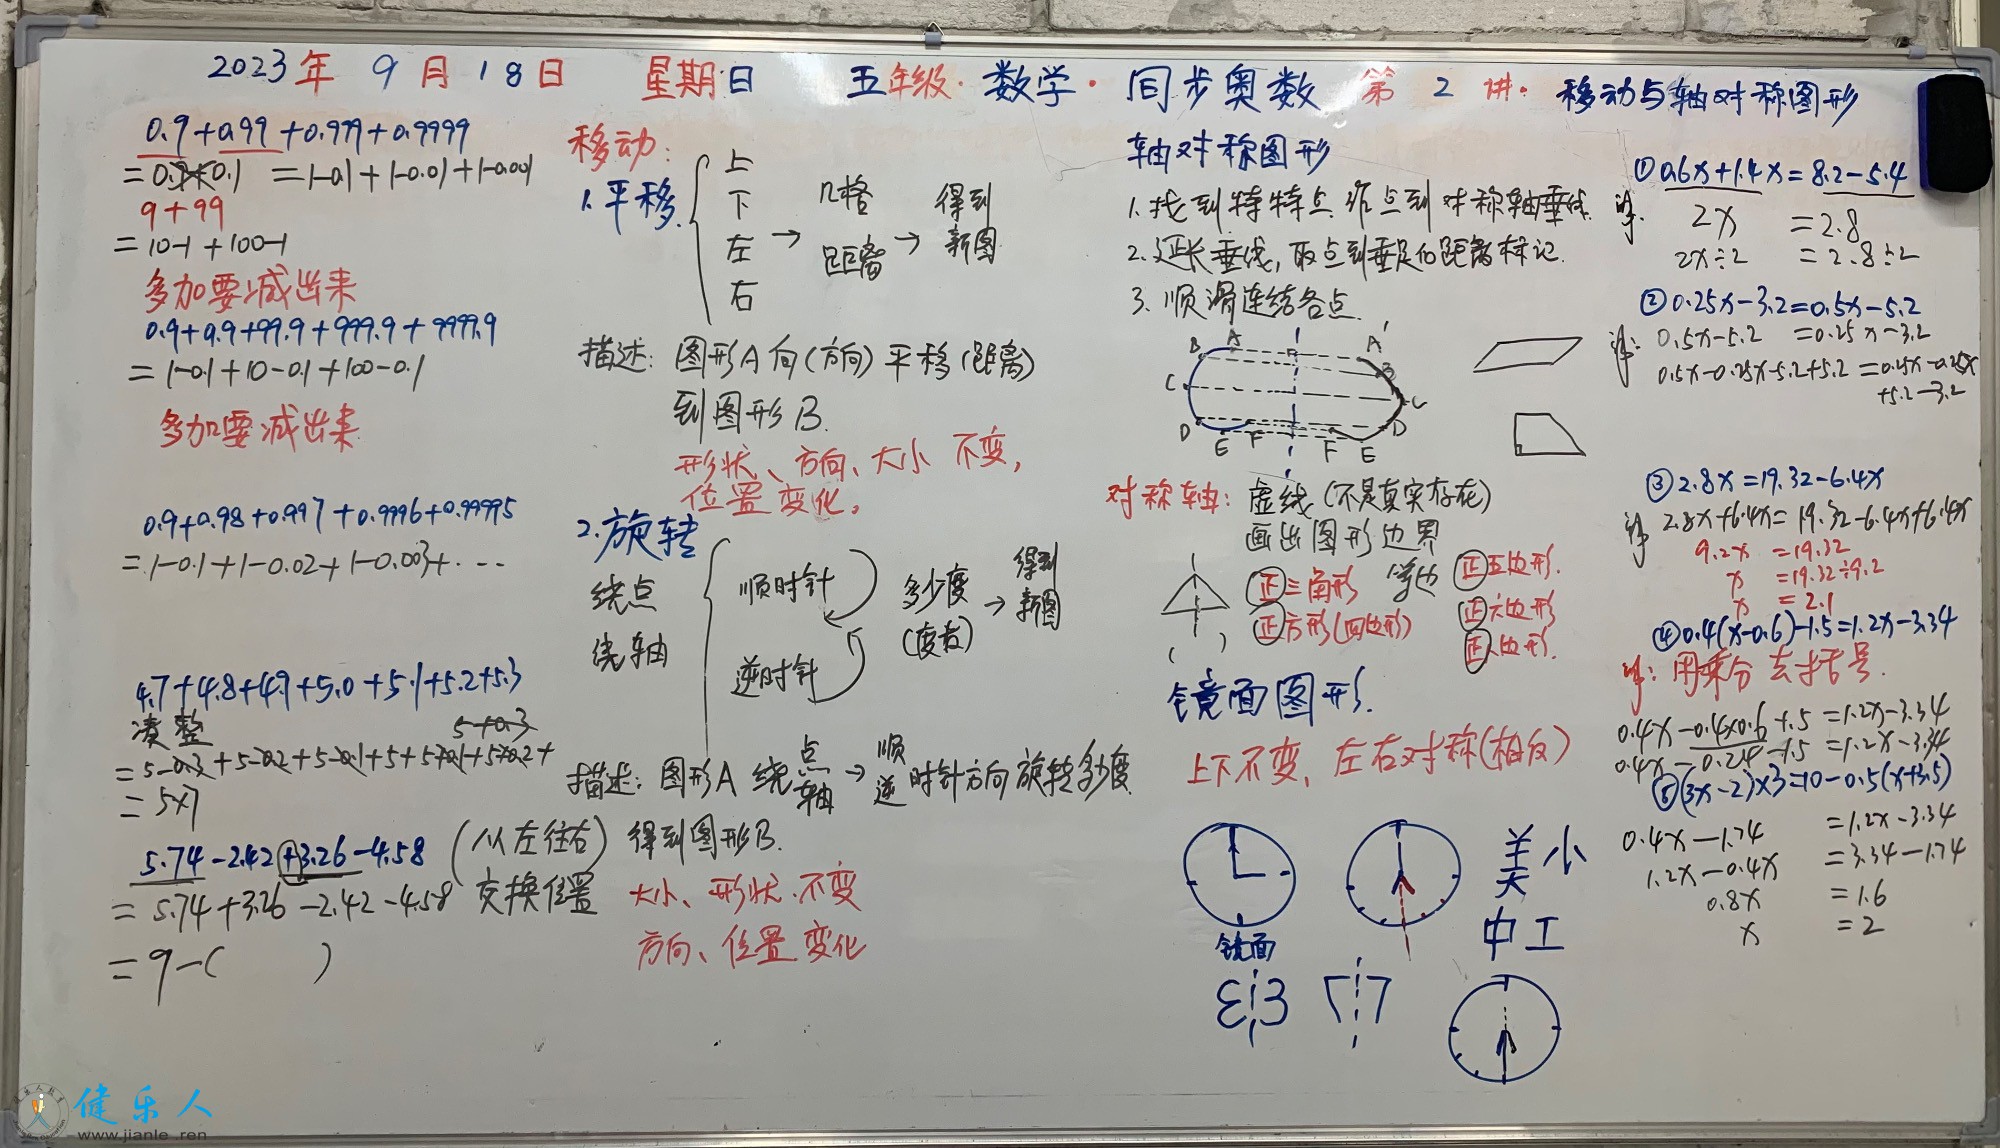 2023年 9月18日 星期日 五年级·数学·同步奥数 第2讲·移动与轴对称图形
0.9+0.99+0.999+0.9999
=1-0.1+1-0.01+1-0.001
9+99
=10-1+100-1
多加要减出来
0.9+9.9+99.9+999.9+9999.9
=1-0.1+10-0.1+100-0.1
多加要减出来
0.9+0.98+0.997+0.9996+0.99995
=1-0.1+1-0.02+1-0.003+···
4.7+4.8+4.9+5.0+5.1+5.2+5.3
凑整
5+0.3
=5-0.3+5-0.2+5-0.1+5+5+0.1+5+0.2+
=5×7
5.74-2.42+3.26-4.58 (从左往右)
=5.74+3.26-2.42-4.58 交换位置
=9-( )
移动:
1.平移
上
下
左
右
→ 几格 距离 → 得到新图
描述: 图形A向(方向)平移(距离)
到图形B.
形状、方向、大小 不变,
位置变化。
2.旋转
绕点
绕轴
顺时针
逆时针
多少度
(度数)
→ 得到新图
描述: 图形A 绕 点 轴 → 顺 逆 时针方向旋转多少度
得到图形B.
大小、形状.不变
方向、位置变化
轴对称图形
1.找到特特点 作点到对称轴垂线.
2.延长垂线,取点到垂足的距离标记.
3.顺滑连结各点.
A A'
B B
C C
D D
E F F E
对称轴: 虚线(不是真实存在)
画出图形边界
正三角形
正方形(四边形)
( )
正五边形.
正六边形
正八边形.
镜面图形.
上下不变,左右对称(相反)
镜面
美小
中工
①0.6x+1.4x=8.2-5.4
解. 2x =2.8
2x÷2 =2.8÷2
②0.25x-3.2=0.5x-5.2
解: 0.5x-5.2 =0.25x-3.2
0.5x-0.25x-5.2+5.2 =0.25x-0.25x
+5.2-3.2
③2.8x=19.32-6.4x
解 2.8x+6.4x=19.32-6.4x+6.4x
9.2x =19.32
x =19.32÷9.2
x =2.1
④0.4(x-0.6)-1.5=1.2x-3.34
解: 用乘分去括号.
0.4x-0.4×0.6-1.5 =1.2x-3.34
0.4x-0.24-1.5 =1.2x-3.34
⑤(3x-2)×3=10-0.5(x+3.5)
0.4x-1.74 =1.2x-3.34
1.2x-0.4x =3.34-1.74
0.8x =1.6
x =2
健乐人
www.jianle.ren